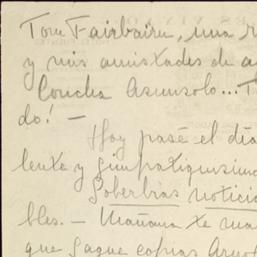 Tom Fairbairn, una r
y mis amistades de a
Concha Asunsolo... T
do! —
Hoy pasé el día
lente y simpatiquísimo
Soberbias noticia
bles. — Mañana te ma
que saque copias Arnol